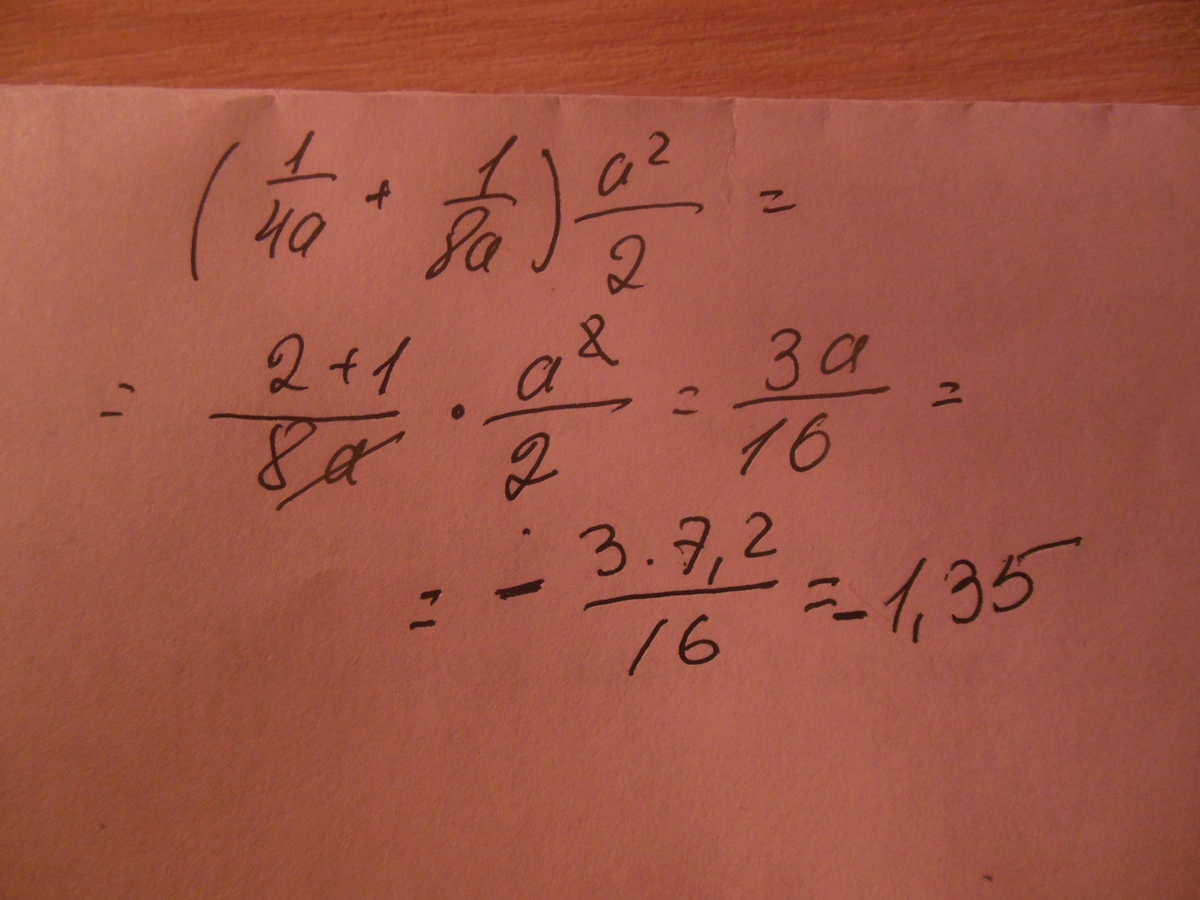 (1/4a + 1/8a) a²/2 =
= 2+1/8a · a²/2 = 3a/16 =
= - 3·7,2/16 = -1,35